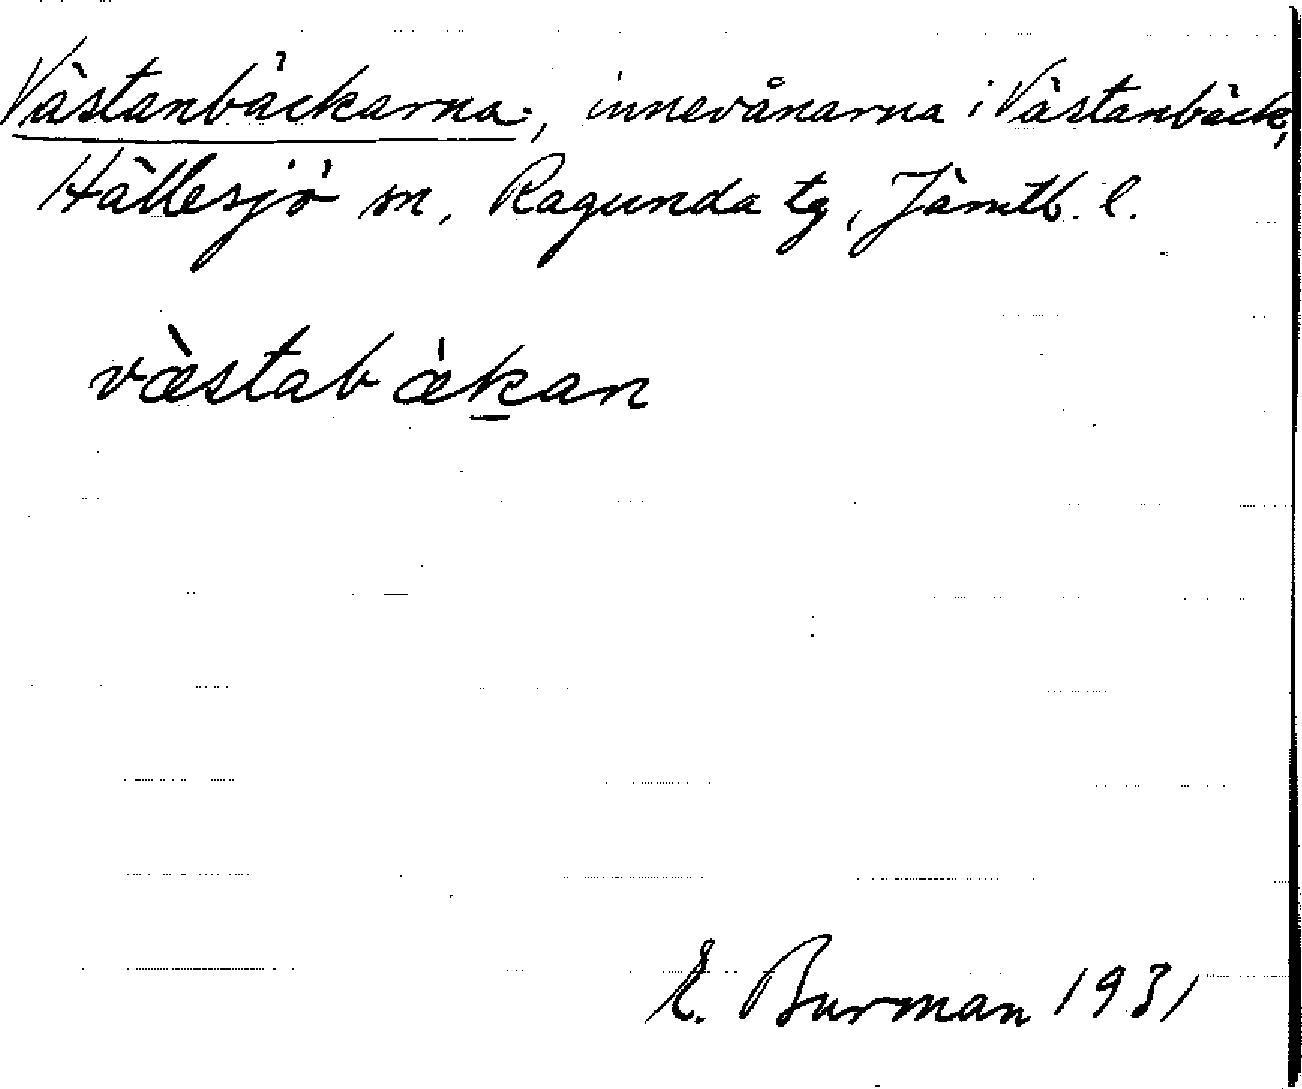 Västanbäckarna, innevånarna i Västanbäck,
Hällesjö sn, Ragunda tg, Jämtl. l.
væ̀stabæ̀k̲an
E. Burman 1931